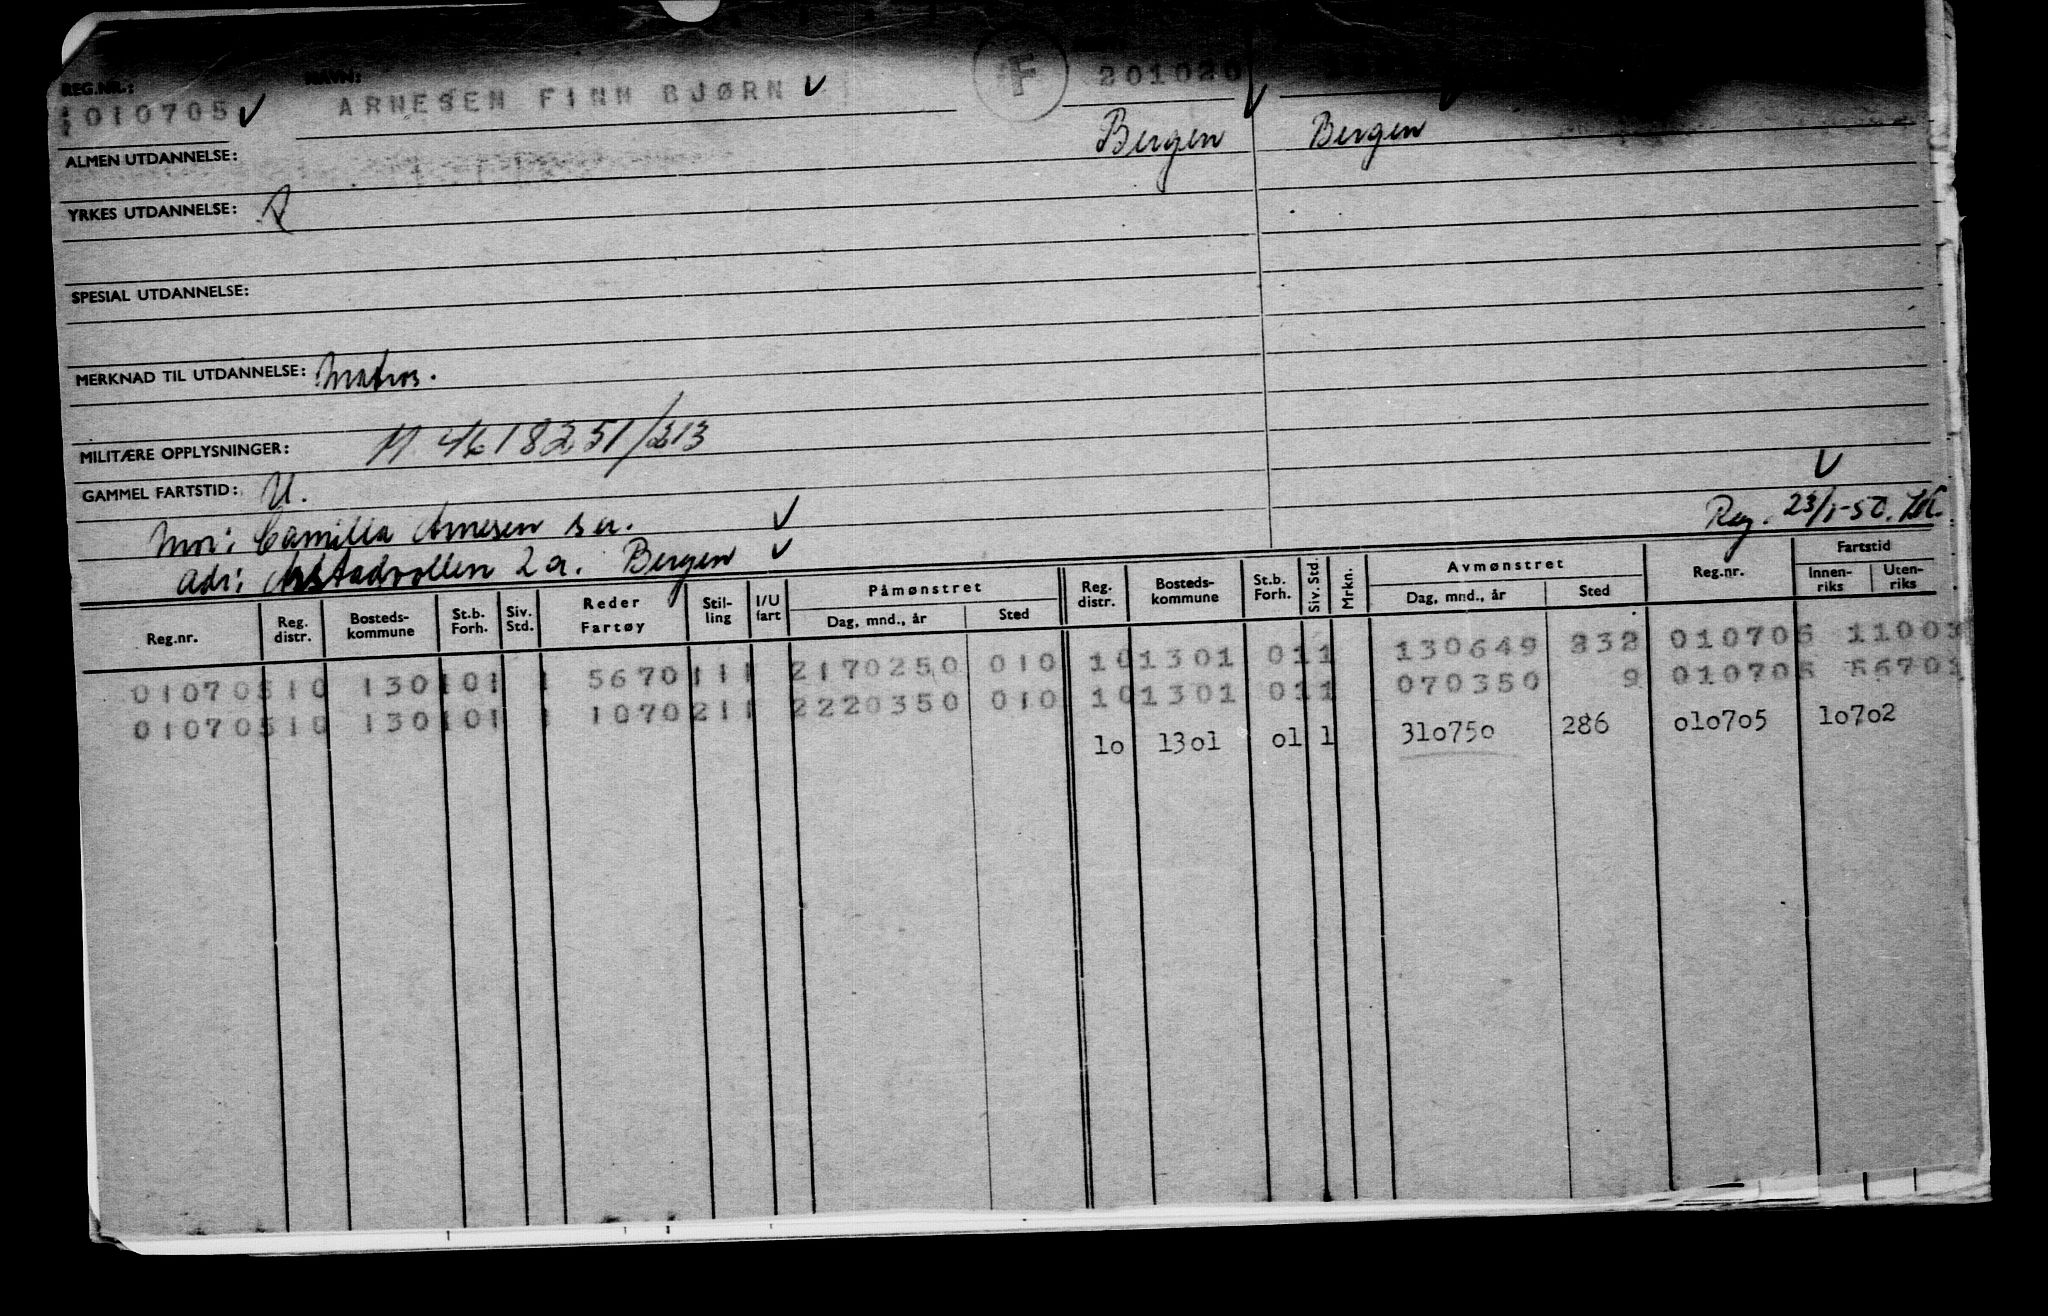 REG.NR.: NAVN:
1010705 ARNESEN FINN BJØRN F 201020
Bergen Bergen
ALMEN UTDANNELSE:
YRKES UTDANNELSE: A
SPESIAL UTDANNELSE:
MERKNAD TIL UTDANNELSE: Matros.
MILITÆRE OPPLYSNINGER: M 4618251/213
GAMMEL FARTSTID: U.
Mor: Camilla Arnesen s a. Reg. 23/1-50.
Adr: Årstadvollen 2 a. Bergen
Reg.nr. Reg. distr. Bosteds-kommune St.b. Forh. Siv. Std. Reder Fartøy Stil-ling I/U fart Påmønstret Dag, mnd., år Sted Reg. distr. Bosteds-kommune St.b. Forh. Siv. Std. Mrkn. Avmønstret Dag, mnd., år Sted Reg.nr. Fartstid Innen-riks Uten-riks
010705 10 1301 01 1 5670 111 2170250 010 10 1301 01 1 130649 332 010705 11001
010705 10 1301 01 1 1070 211 2220350 010 10 1301 01 1 070350 9 010705 56701
10 1301 01 1 310750 286 010705 10702